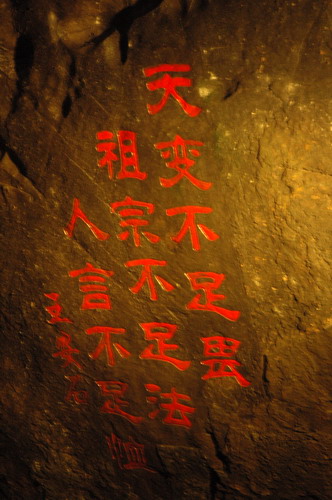 天变不足畏
祖宗不足法
人言不足恤
王安石